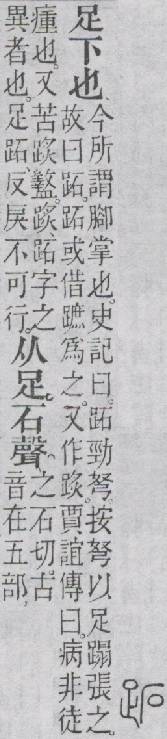 足下也。
今所謂腳掌也。史記曰。跖勁弩。按弩以足蹋張之。
故曰跖。跖或借蹠爲之。又作𨂂。賈誼傳曰。病非徒
瘇也。又苦𨂂盭。𨂂、跖字之
異者也。足跖反戾不可行。
从足。石聲。
之石切。古
音在五部。
跖